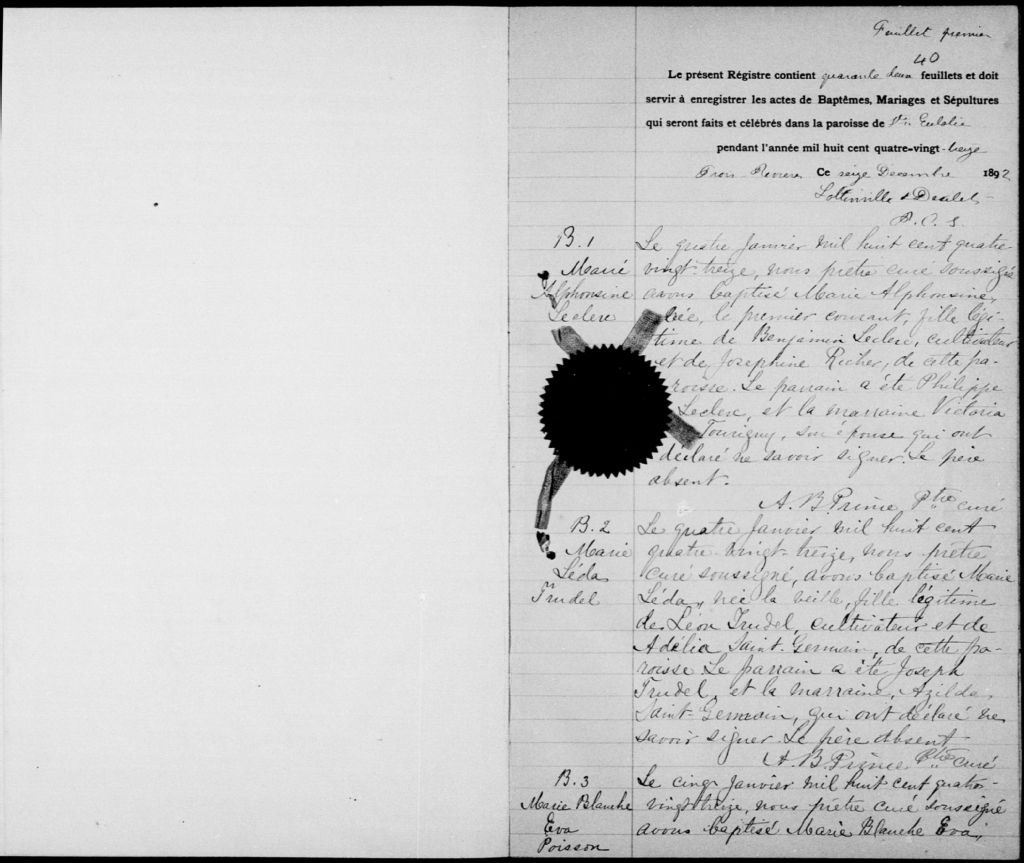 Feuillet premier
40
Le présent Régistre contient quarante deux feuillets et doit
servir à enregistrer les actes de Baptêmes, Mariages et Sépultures
qui seront faits et célébrés dans la paroisse de Ste Eulalie
pendant l'année mil huit cent quatre-vingt-treize
Trois Rivières Ce seize Décembre 1892
Lottinville & Desilets
P. C. S.
B. 1
Marie
Alphonsine
Leclerc
Le quatre Janvier mil huit cent quatre
vingt-treize, nous prêtre curé soussigné
avons baptisé Marie Alphonsine,
née, le premier courant, fille légi-
time de Benjamin Leclerc, cultivateur
et de Josephine Richer, de cette pa-
roisse. Le parrain a été Philippe
Leclerc, et la marraine Victoria
Tourigny, son épouse qui ont
déclaré ne savoir signer. Le père
absent.
A. B. Prince Ptre curé
B. 2
Marie
Léda
Trudel
Le quatre Janvier mil huit cent
quatre-vingt-treize, nous prêtre
curé soussigné, avons baptisé Marie
Léda, née la veille, fille légitime
de Léon Trudel, cultivateur et de
Adélia Saint-Germain, de cette pa-
roisse Le parrain a été Joseph
Trudel, et la marraine, Azilda,
Saint-Germain, qui ont déclaré ne
savoir signer. Le père absent
A. B. Prince Ptre curé
B. 3
Marie Blanche
Eva
Poisson
Le cinq Janvier mil huit cent quatre-
vingt-treize, nous prêtre curé soussigné
avons baptisé Marie Blanche Eva,